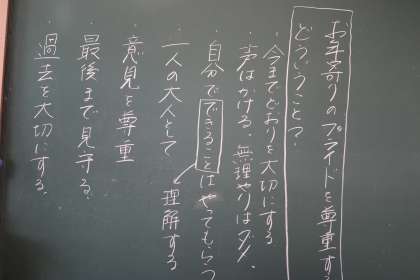 お年寄りのプライドを尊重す
どういうこと?
・今までどおりを大切にする
・声はかける、無理やりはダメ
・自分でできることはやってもらう
・一人の大人として理解する
・意見を尊重
・最後まで見守る
・過去を大切にする